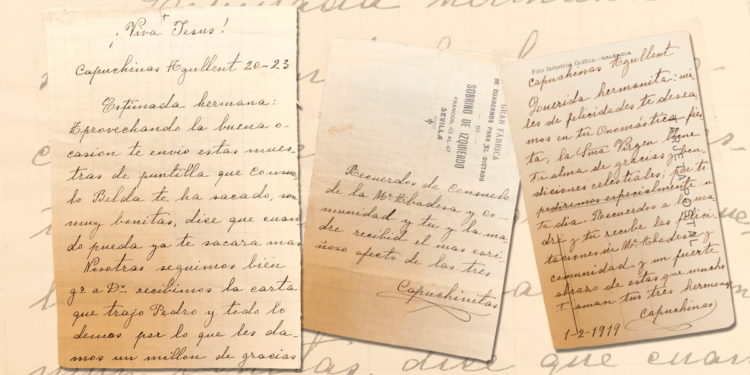 ¡Viva Jesus!
Capuchinas Agullent 20-23
Estimada hermana:
Aprovechando la buena o-
casion te envio estas mues
tras de puntilla que Consue
lo Belda te ha sacado, son
muy bonitas, dice que cuan
do pueda ya te sacara mas
Nosotras seguimos bien
gs. a Ds. recibimos la carta
que trajo Pedro y todo lo
demas por lo que les da-
mos un millon de gracias
GRAN FABRICA
DE CUADERNOS PARA EL
DE
SOBRINO DE IZQUIERDO
FRANCOS, 43 AL 47
SEVILLA
Recuerdos de Consuelo
de la Me. Abadesa y co-
munidad y tu y la ma-
dre recibid el mas cari-
ñoso afecto de las tres
Capuchinitas
Foto Industria Gráfica.-VALENCIA
TARJETA POSTAL
Capuchinas Agullent
Querida hermanita: mi-
les de felicidades te desea
mos en tu Onomástica fies
ta, la Sma Virgen
tu alma de gracias y ben
diciones celestiales; por ti
pediremos especialmente
tu dia. Recuerdos a la ma
dre y tu recibe las felici
taciones de Me. Abadesa y
comunidad y un fuerte
abrazo de estas que mucho
aman tus tres hermanas
Capuchinas
1-2-1919